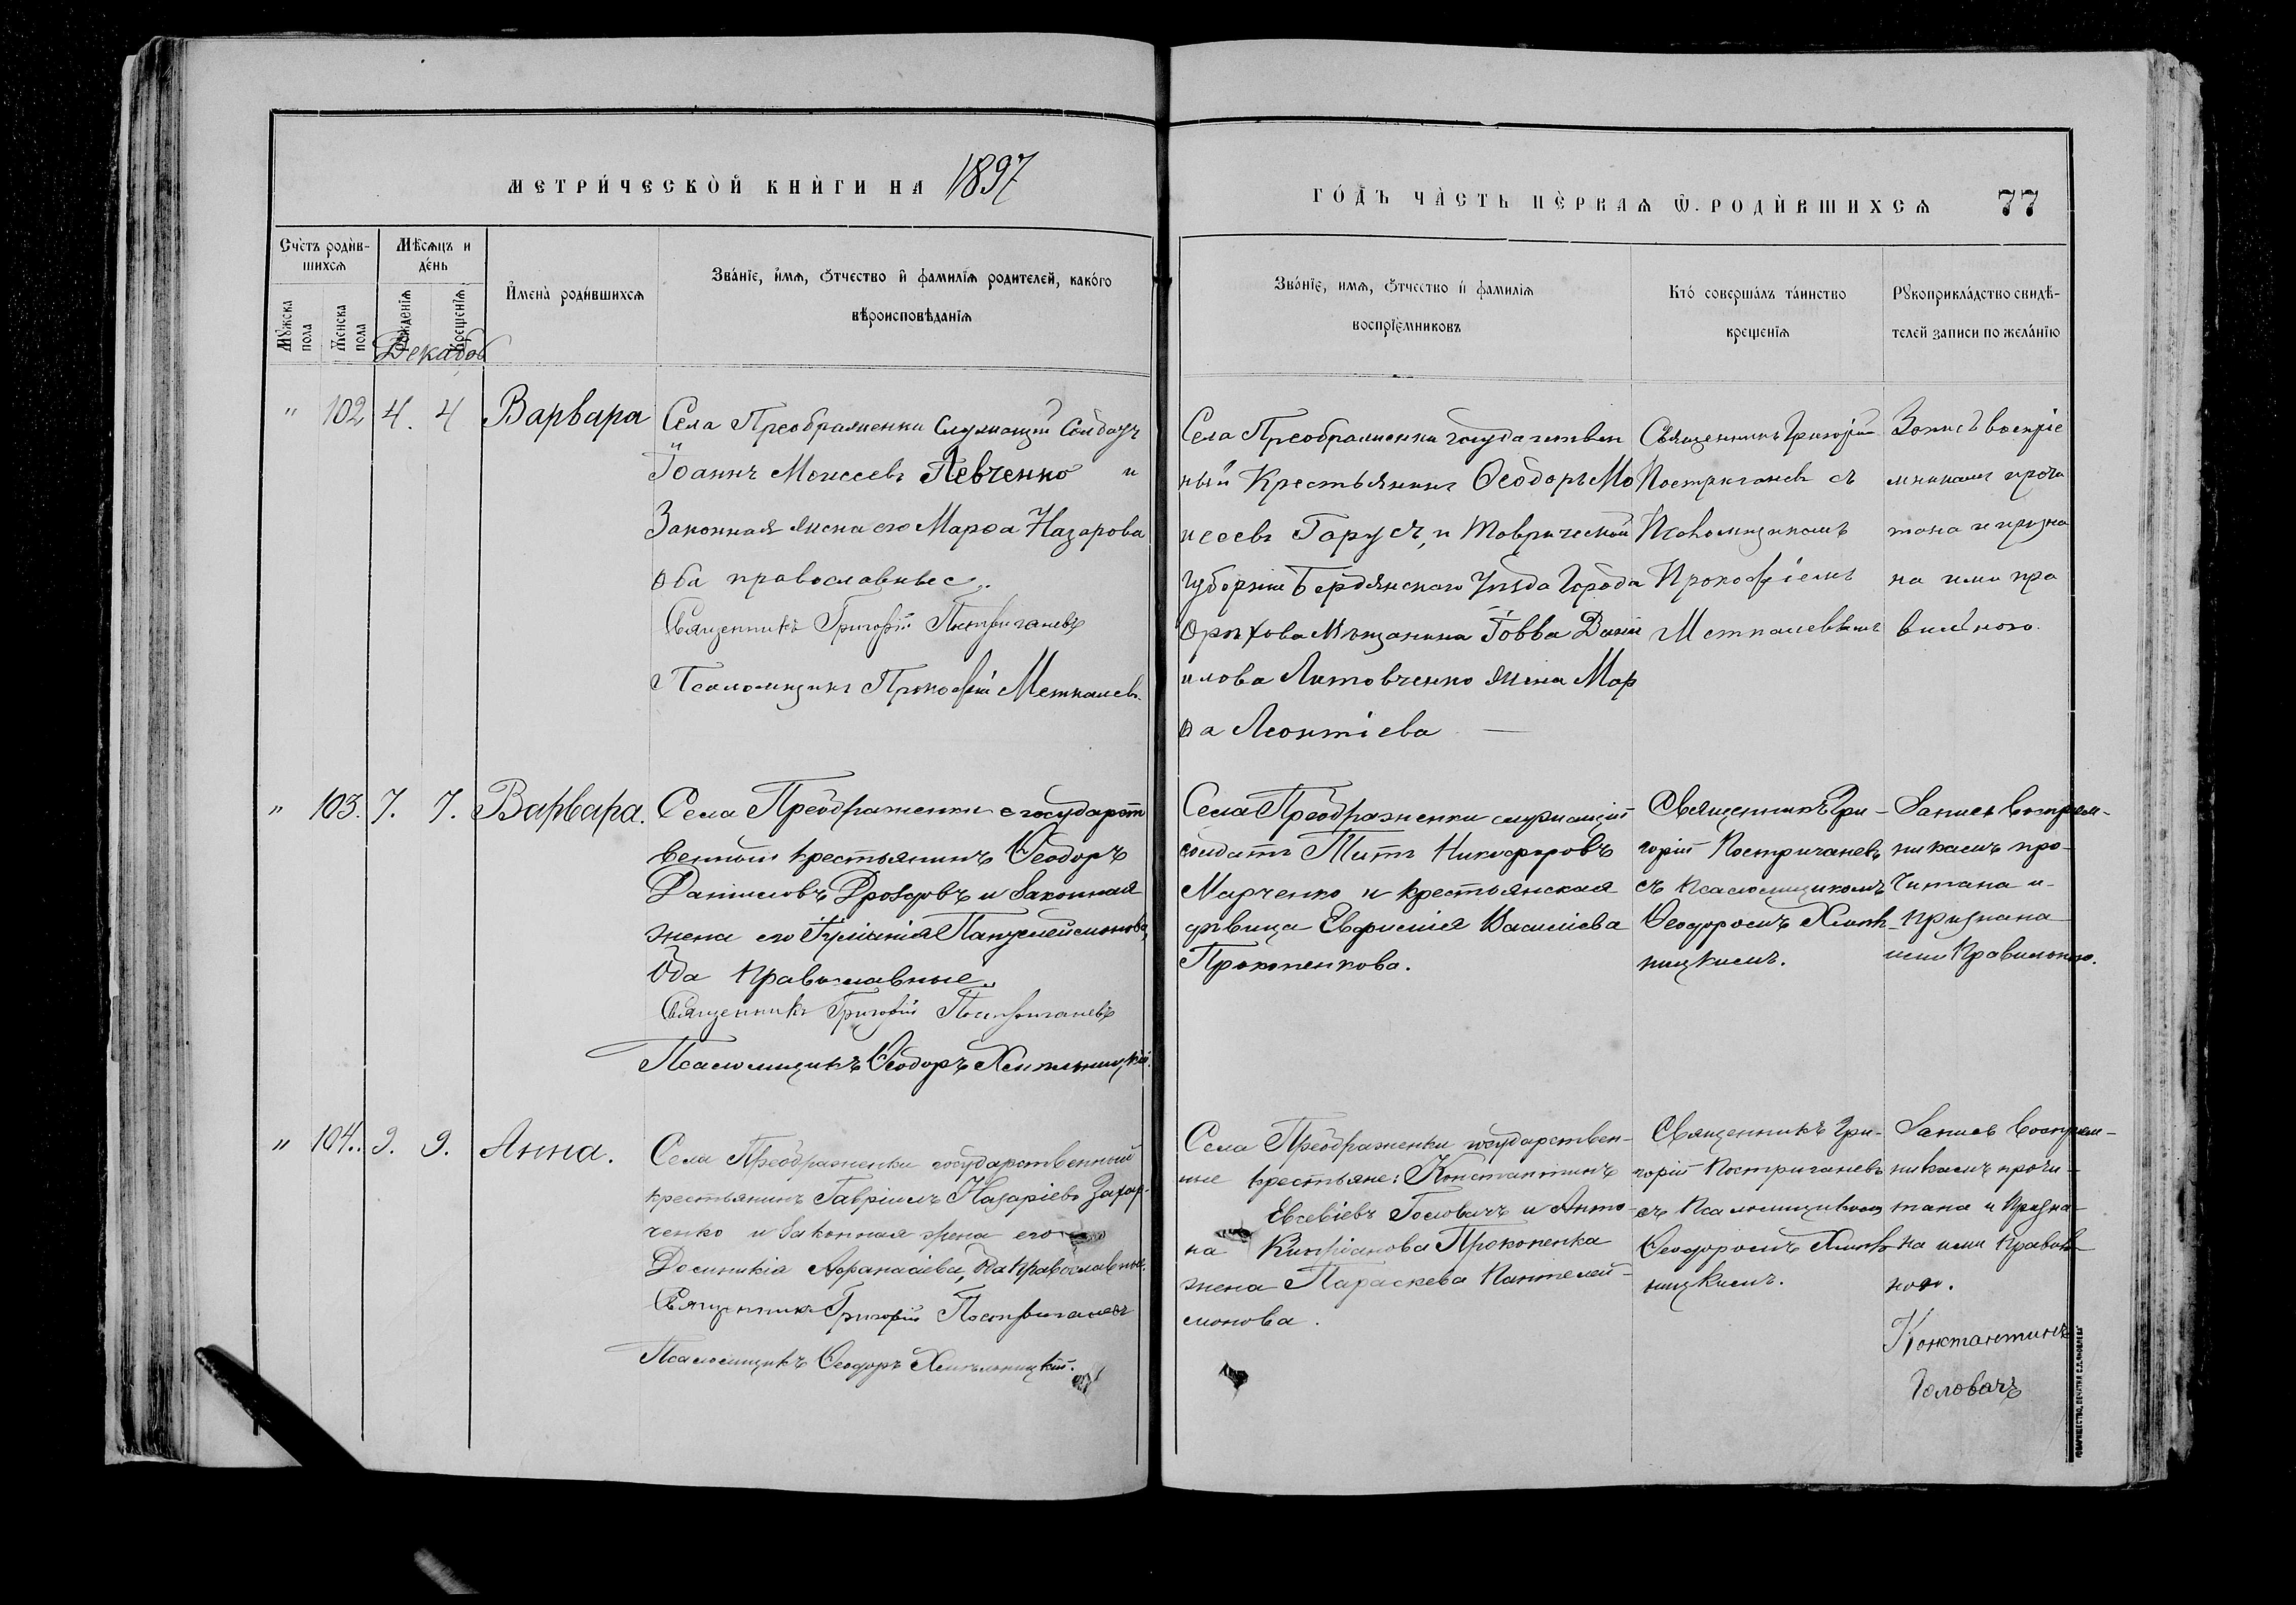 МЕТРИ́ЧЕСКОЙ КНИ́ГИ НА 1897
ГО́ДЪ ЧА́СТЬ ПЕ́РВАѦ Ѿ. РОДИ́ВШИХСѦ 77
Сче́тъ роди́в-
шихсѧ
Мѣ́сѧцъ и
де́нь
Мꙋжска
пола
Женска
пола
Рожденїѧ
Крещенїѧ
И҆мена̀ роди́вшихсѧ
Зва́нїе, и҆́мѧ, ѻ҆́тчество и҆ фамилїѧ родителей, како́го
вѣроисповѣ́данїѧ
Зва́нїе, имѧ, ѻ҆́тчество и҆ фамилїѧ
воспрїе́мниковъ
Кто̀ соверша́лъ та́инство
крещенїѧ
Рꙋкоприкла́дство свидѣ́-
телей записи по жела́нїю
Декабр
" 102 4. 4 Варвара
Села Преображенки Служащій Солдатъ
Іоаннъ Моисеевъ Левченко и
Законная жена его Марѳа Назарова
Оба православные.
Священникъ Григорій Постриганевъ
Псаломщикъ Прокофій Меткалевъ
Села Преображенки государствен
ный Крестьянинъ Ѳеодоръ Мо
исеевъ Гарусъ, и Таврической
Губерніи Бердянскаго Уѣзда Города
Орѣхова Мѣщанина Іовва Дані
илова Литовченко жена Мар
ѳа Леонтіева —
Священникъ Григорій
Постриганевъ съ
Псаломщикомъ
Прокофіемъ
Меткалевымъ
Запись воспріе
мниками прочи
тана и призна
на ими пра
вильною.
" 103. 7. 7. Варвара.
Села Преображенки государст
венный крестьянинъ Ѳеодоръ
Даниловъ Дроздовъ и законная
жена его Іуліанія Пантелеймонова,
Оба Православные.
Священникъ Григорій Постриганевъ
Псаломщикъ Ѳеодоръ Хмѣльницкій.
Села Преображенки служащій
солдатъ Титъ Никифоровъ
Марченко и крестьянская
дѣвица Евфимія Василіева
Прокопенкова.
Священникъ Гри-
горій Постриганевъ
съ Псаломщикомъ
Ѳеодоромъ Хмѣль
ницкимъ.
Запись воспріем-
никами про-
читана и
признана
ими Правильною.
" 104. 9. 9. Анна.
Села Преображенки государственный
крестьянинъ Гавріилъ Назаріевъ Захар-
ченко и законная жена его
Домникія Афанасіева, Оба Православные.
Священникъ Григорій Постриганевъ
Псаломщикъ Ѳеодоръ Хмѣльницкій.
Села Преображенки государствен-
ные крестьяне: Константинъ
Евсевіевъ Головачъ и Анто-
на Кипріанова Прокопенка
жена Параскева Пантелей-
монова.
Священникъ Гри-
горій Постриганевъ
съ Псаломщикомъ
Ѳеодоромъ Хмѣль
ницкимъ.
Запись воспріем-
никами прочи-
тана и Призна-
на ими Правиль
ною.
Константинъ
Головачъ